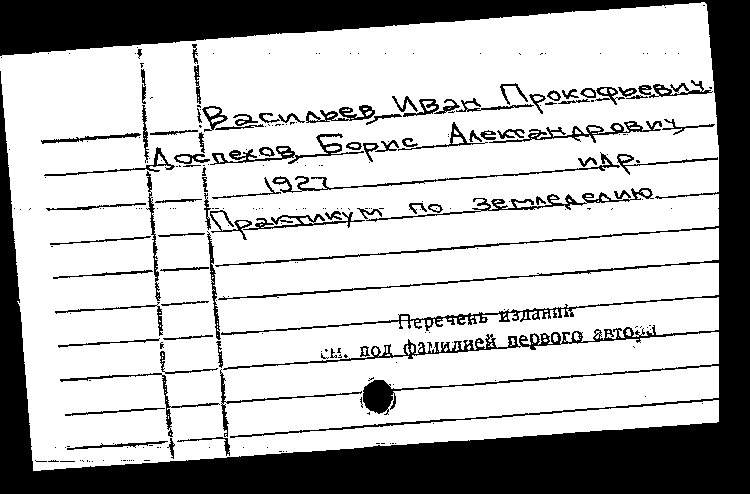 Васильев, Иван Прокофьевич.
Доспехов, Борис Александрович,
1927 и др.
Практикум по земледелию.
Перечень изданий
см. под фамилией первого автора